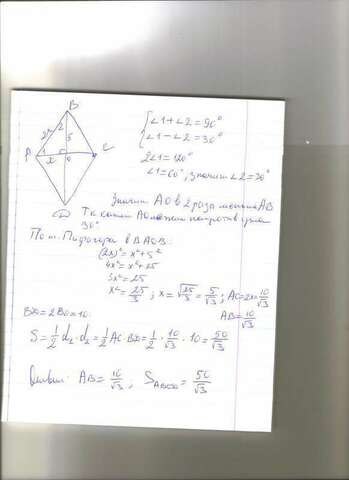 B
2x
2
5
A
1
x
0
C
D
∠1+∠2=90°
∠1-∠2=30°
2∠1=120°
∠1=60°, значит ∠2=30°
Значит AO в 2 раза меньше AB
Т к катет AO лежит напротив угла
30°
По т. Пифагора в △ AOB:
(2x)²=x²+5²
4x²=x²+25
3x²=25
x²=25/3; x=√25/√3=5/√3; AC=2x=10/√3
BD=2BO=10.
AB=10/√3
S=1/2 d₁·d₂=1/2 AC·BD=1/2·10/√3·10=50/√3
Ответ: AB=10/√3; S ABCD=50/√3